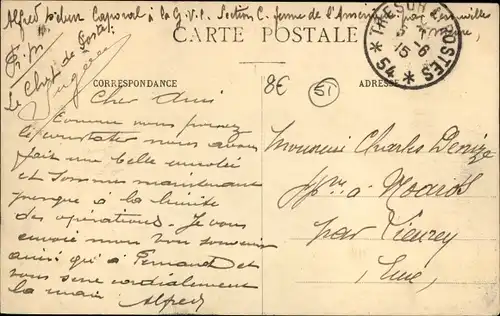 Alfred Caporal à la G.V.C. Section C. ferme de l'
par
CARTE POSTALE
TRESOR POSTES
15 - 6
* 54 *
Le Chef de Poste
CORRESPONDANCE
ADRESSE
8€
51
Cher Ami
Comme vous pouvez
le constater nous avons
fait une belle
et sommes maintenant
presque à la limite
des opérations. Je vous
envoie mon bon souvenir
ainsi qu'à Fernand et
vous serre cordialement
la main Alfred
Monsieur Charles Denize
à Noards
par Lieurey
Eure